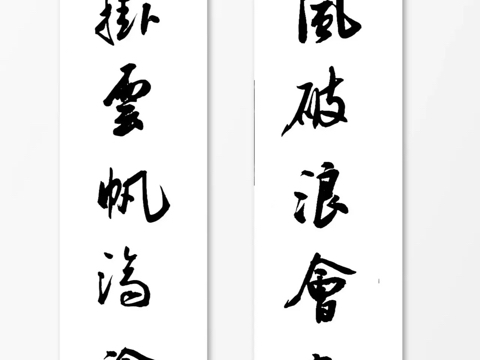 風破浪會
掛雲帆濟滄